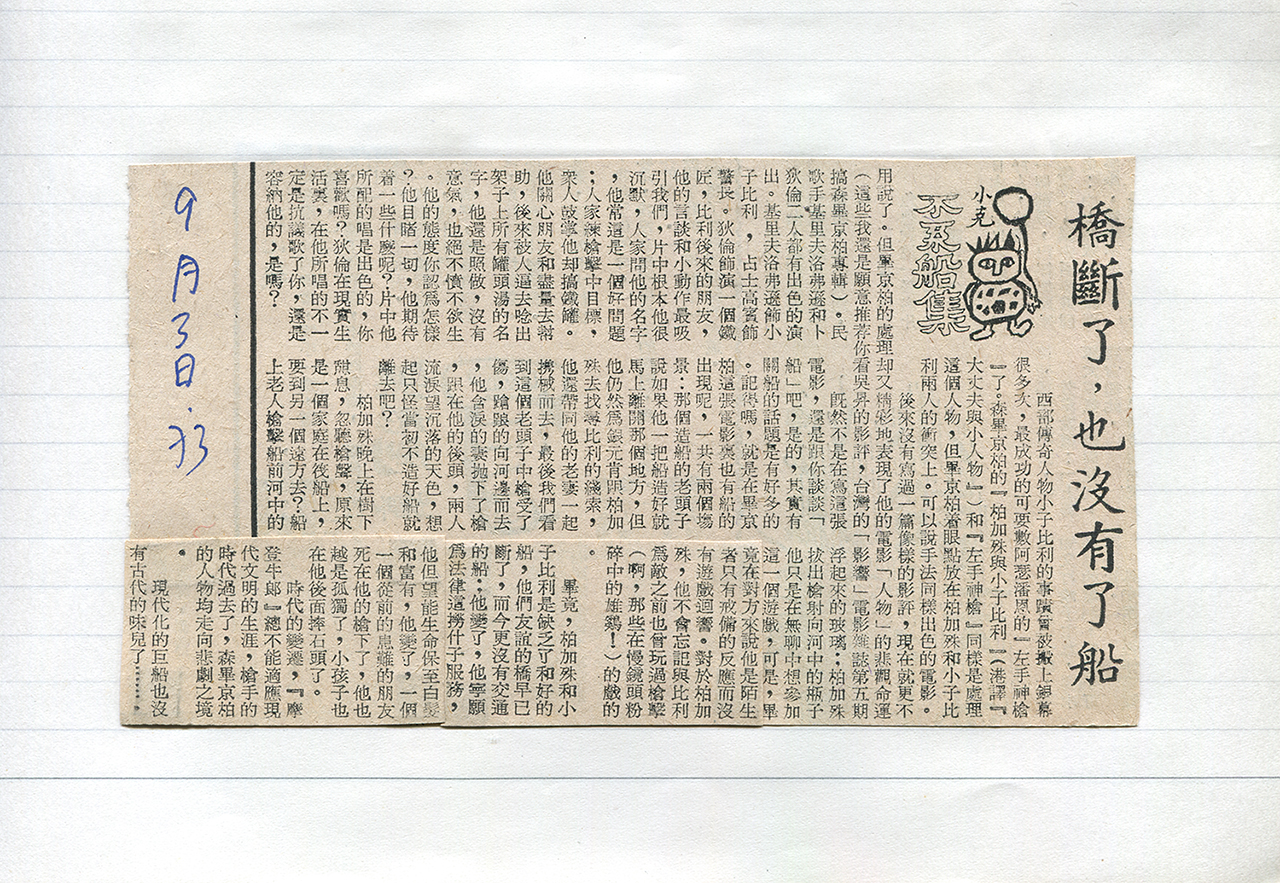 橋斷了，也沒有了船
小克
不系船集
西部傳奇人物小子比利的事蹟曾被搬上銀幕
很多次，最成功的可要數阿瑟潘恩的『左手神槍
』了。森畢京柏的『柏加殊與小子比利』（港譯『
大丈夫與小人物』）和『左手神槍』同樣是處理
這個人物，但畢京柏着眼點放在柏加殊和小子比
利兩人的衝突上。可以說手法同樣出色的電影。
後來沒有寫過一篇像樣的影評，現在就更不
用說了。但畢京柏的處理却又精彩地表現了他的電影「人物」的悲觀命運
（這些我還是願意推荐你看吳昇的影評，台灣的「影響」電影雜誌第五期
搞森畢京柏專輯）。民
歌手基里夫洛弗遜和卜
狄倫二人都有出色的演
出。基里夫洛弗遜飾小
子比利，占士高賓飾
警長。狄倫飾演一個鐵
匠，比利後來的朋友，
他的言談和小動作最吸
引我們，片中根本他很
沉默，人家問他的名字
，他常這是一個好問題
；人家練槍擊中目標，
衆人鼓掌他却搞鐵罐。
他關心朋友和盡量去幫
助，後來被人逼去唸出
架子上所有罐頭湯的名
字，他還是照做，沒有
意氣，也絕不憤不欲生
。他的態度你認爲怎樣
？他目睹一切，他期待
着一些什麽呢？片中他
所配的唱是出色的，你
喜歡嗎？狄倫在現實生
活裏，在他所唱的不一
定是抗議歌了你，還是
容納他的，是嗎？
既然不是在寫這張
電影，還是跟你談談「
船」吧，是的，其實有
關船的話題是有好多的
。記得嗎，就是在畢京
柏這張電影裏也有船的
出現呢，一共有兩個塲
景：那個造船的老頭子
說如果他一把船造好就
馬上離開那個地方，但
他仍然爲銀元肯跟柏加
殊去找尋比利的綫索，
他還帶同他的老妻一起
携械而去，最後我們看
到這個老頭子中槍受了
傷，蹌踉的向河邊而去
，他含淚的妻拋下了槍
，跟在他的後頭，兩人
流淚望沉落的天色，想
起只怪當初不造好船就
離去吧？
柏加殊晚上在樹下
甜息，忽聽槍聲，原來
是一個家庭在伐船上，
要到另一個遠方去？船
上老人槍擊船前河中的
浮起來的玻璃；柏加殊
拔出槍射向河中的瓶子
他只是在無聊中想參加
這一個遊戲，可是，畢
竟在對方來說他是陌生
者只有戒備的反應而沒
有遊戲迴響。對於柏加
殊，他不會忘記與比利
爲敵之前也曾玩過槍擊
（啊，那些在慢鏡頭粉
碎中的雄鷄！）的戲的
。
畢竟，柏加殊和小
子比利是缺乏了和好的
船，他們友誼的橋早已
斷了，而今更沒有交通
的船；他變了，他寧願
爲法律這撈什子服務，
他但望能生命保至白髮
和富有，他變了，一個
一個從前的患難的朋友
死在他的槍下了，他也
越是孤獨了，小孩子也
在他後面捽石頭了。
時代的變遷，『摩
登牛郎』總不能適應現
代文明的生涯，槍手的
時代過去了，森畢京柏
的人物均走向悲劇之境
。
現代化的巨船也沒
有古代的味兒了………，
9月3日.